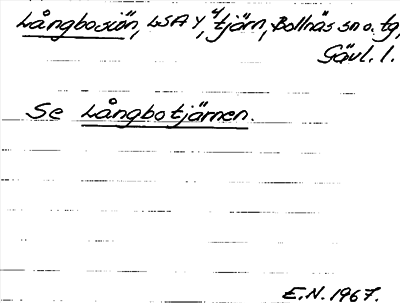 Långbosjön, LSA Y, 4 tjärn, Bollnäs sn o. tg,
Gävl. l.
Se Långbotjärnen.
E.N. 1967.